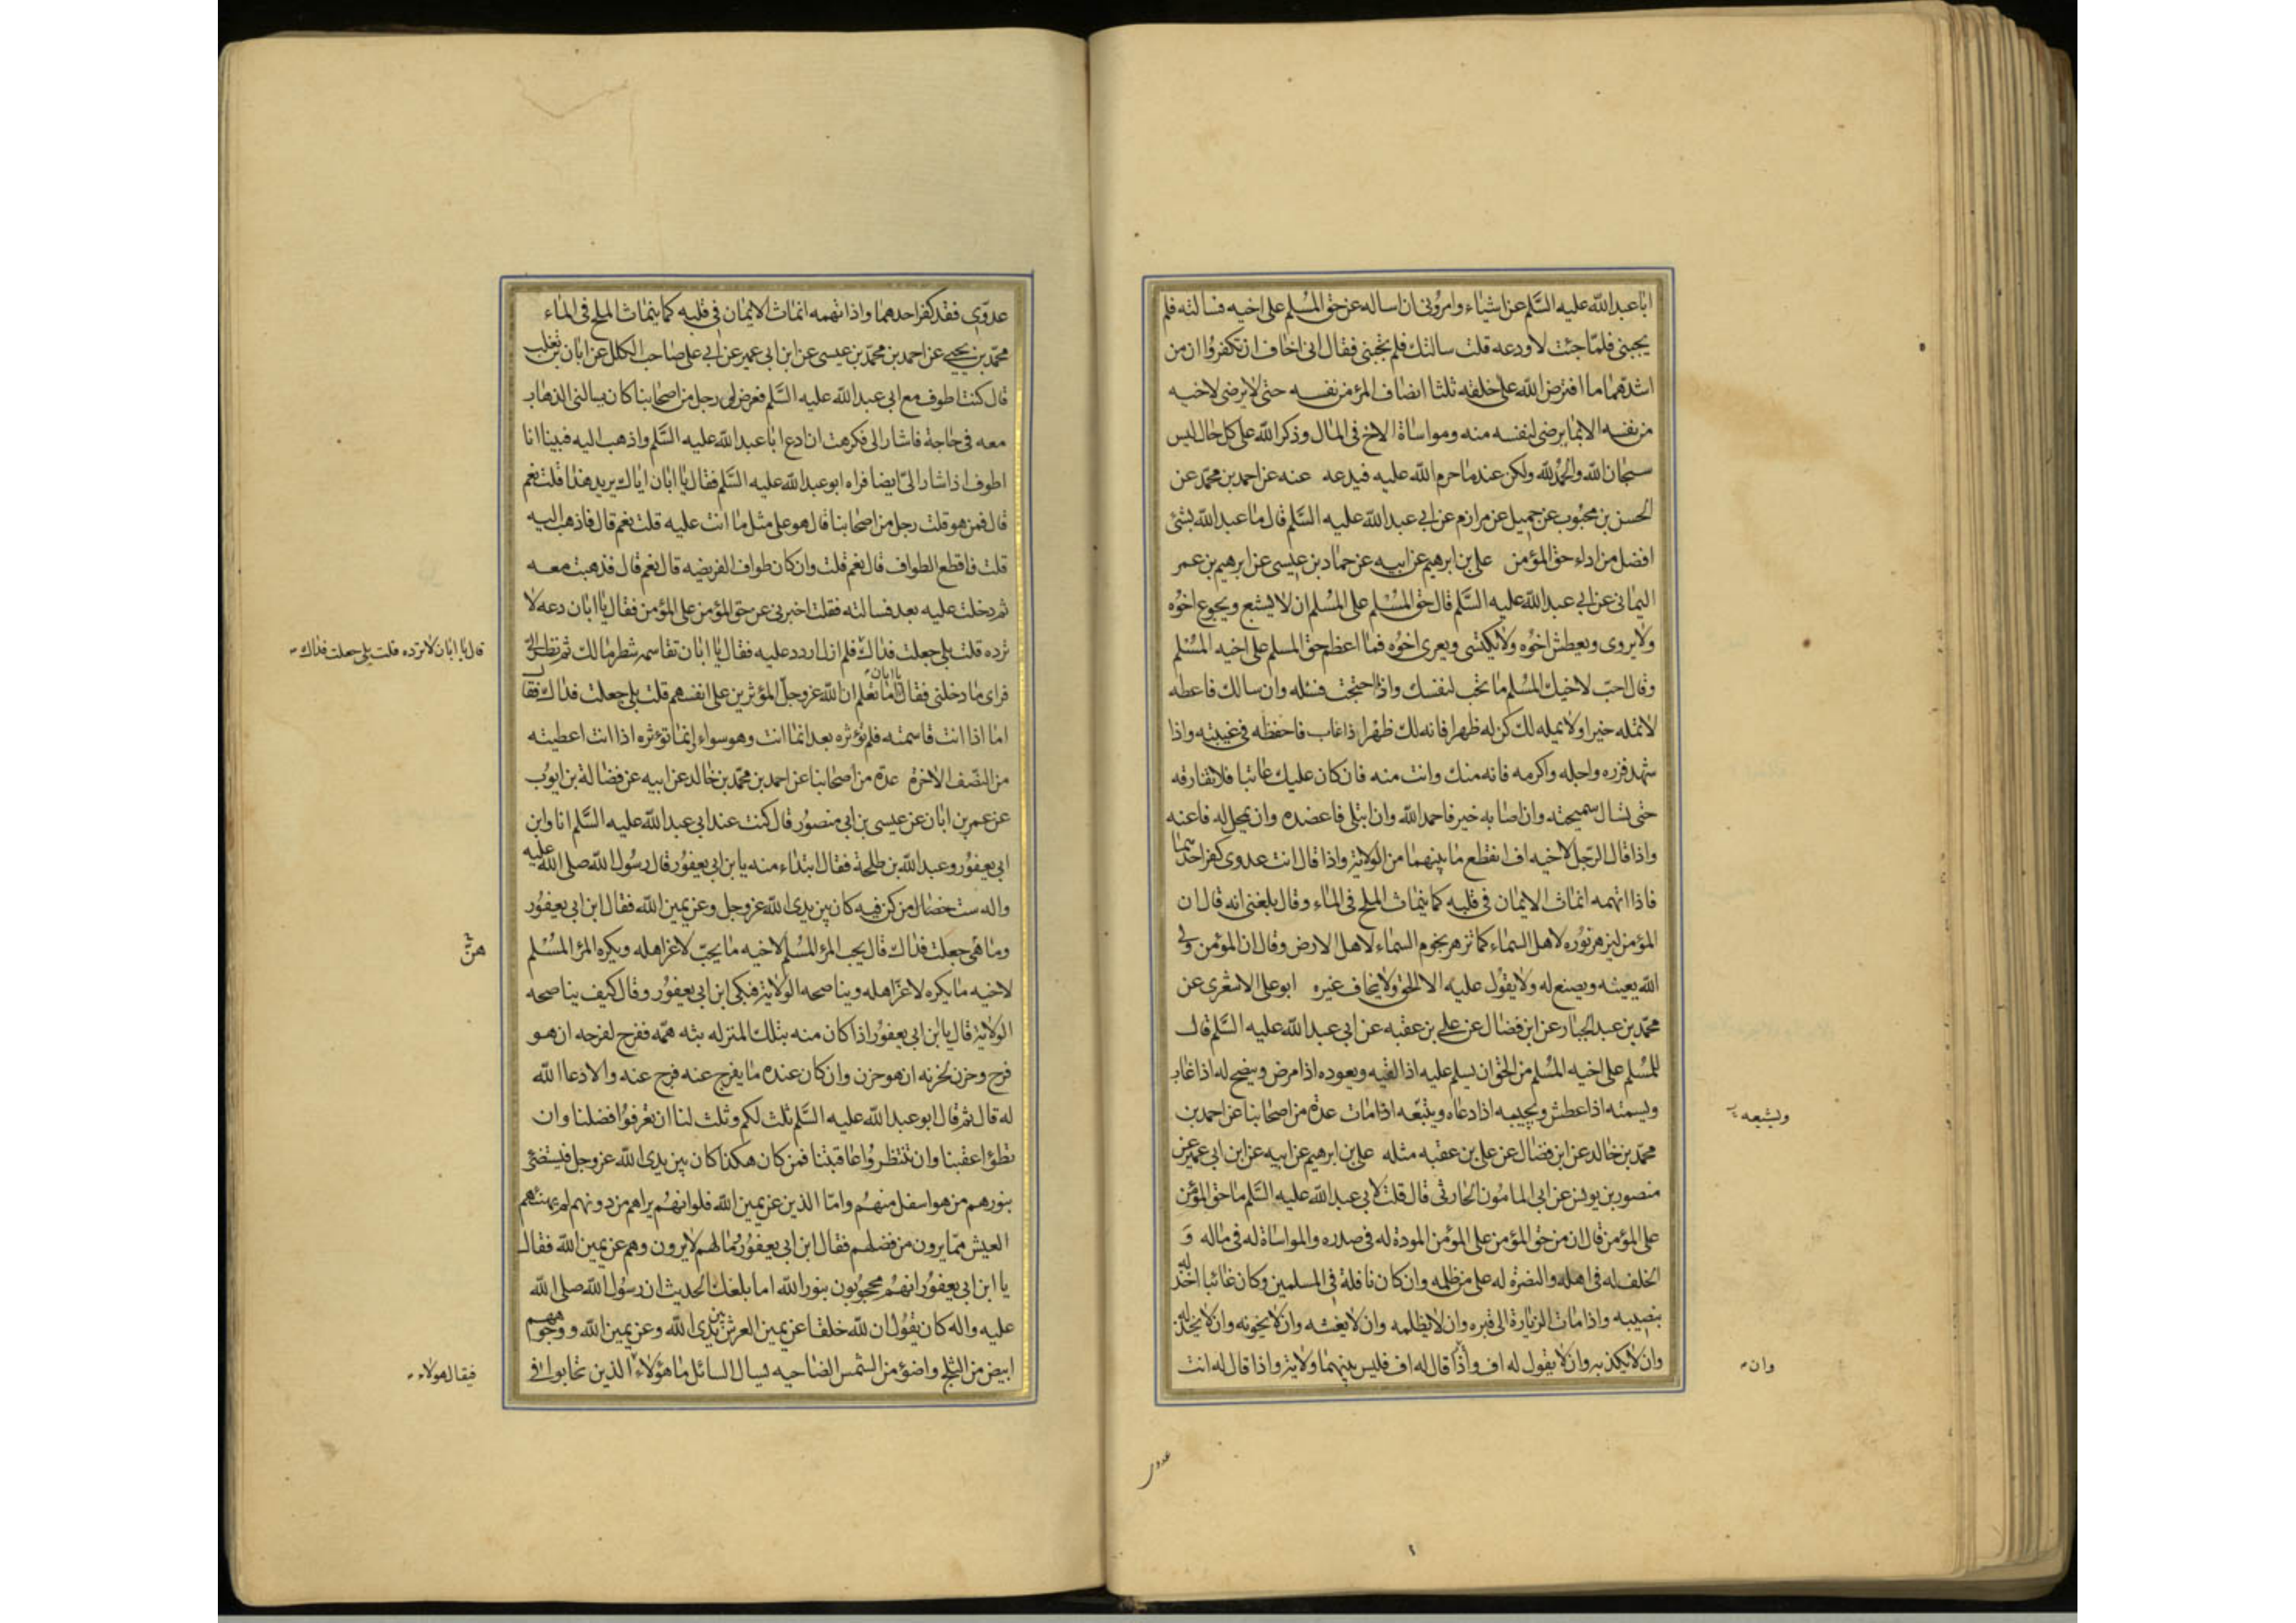 ابا عبد الله عليه السَّلم عن اشياء وامرونى ان اساله عن حق المُسلم على اخيه فسالته فلم
يجبنى فلمّا جئت لاودعه قلت سالتك فلم تجبنى فقال انى اخاف ان تكفروا ان من
اشدّهما ما افترض الله على خلقه ثلثا انصاف المؤمن نفسه حتى لا يرضى لاخيه
من نفسه الا بما يرضى لنفسه منه ومواساة الاخ فى المال وذكر الله على كل حال ليس
سبحان الله والحمد لله ولكن عند ما حرم الله عليه فيدعه عنه عن احمد بن محمّد عن
الحسن بن محبوب عن جميل عن مرازم عن ابى عبد الله عليه السَّلم قال ما عبد الله بشئ
افضل من اداء حق المؤمن على بن ابرهيم عن ابيه عن حماد بن عيسى عن ابرهيم بن عمر
اليمانى عن ابى عبد الله عليه السَّلم قال حق المُسْلم على المُسْلم ان لا يشبع ويجوع اخوُه
ولا يروى ويعطش اخوُه ولا يكتسى ويعرى اخوُه فما اعظم حق المسلم على اخيه المُسْلم
وقال احبّ لاخيك المُسْلم ما تحب لنفسك واذا احتجت فسئله وان سالك فاعطه
لا تمله خيرا ولا يمله لك كن له ظهرا فانه لك ظهر اذا غاب فاحفظه فى غيبته واذا
شهد فزره واجله واكرمه فانه منك وانت منه فان كان عليك عاتبا فلا تفارقه
حتى تسال سميحته وان اصابه خير فاحمد الله وان ابتلى فاعضده وان يمحل له فاعنه
واذا قال الرّجل لاخيه اف انقطع ما بينهما من الولاية واذا قال انت عدوى كفر احدهما
فاذا اتهمه انماث الايمان فى قلبه كما ينماث الملح فى الماء وقال بلغنى انه قال ان
المؤمن ليزهر نوُره لاهل السماء كما تزهر نجوم السماء لاهل الارض وقال ان المؤمن ولى
الله يعينه ويصنع له ولا يقوُل عليه الا الحق ولا يخاف غيره ابو على الاشعرى عن
محمّد بن عبد الجبار عن ابن فضال عن على بن عقبه عن ابى عبد الله عليه السَّلم قال
للمُسلم على اخيه المُسْلم من الحق ان يسلم عليه اذا لقيه ويعوده اذا مرض وينصح له اذا غاب
ويسمته اذا عطش ويجيبه اذا دعاه ويتبعه اذا مات عدّة من اصحابنا عن احمد بن
ويشيعه
محمّد بن خالد عن ابن فضال عن على بن عقبه مثله على بن ابرهيم عن ابيه عن ابن ابى عمير عن
منصور بن يونس عن ابى المامون الحارثى قال قلت لابى عبد الله عليه السَّلم ما حق المؤمن
على المؤمن قال ان من حق المؤمن على المؤمن المودة له فى صدره والمواساة له فى ماله وَ
الخلف له فى اهله والنصرة له على من ظلمه وان كان نافلة فى المسلمين وكان غائبا اخذ له
بنصيبه واذا مات الزيارة الى قبره وان لا يظلمه وان لا يغشه وان لا يخونه وان لا يخذله
وان لا يكذبه وان لا يقول له اف واذا قال له اف فليس بينهما ولاية واذا قال له انت
وان
عدوى
عدوّى فقد كفر احدهما واذا تهمه انماث الايمان فى قلبه كما ينماث الملح فى الماء
محمّد بن يحيى عن احمد بن محمّد بن عيسى عن ابن ابى عمير عن ابى على صاحب الكلل عن ابان بن تغلب
قال كنت اطوف مع ابى عبد الله عليه السَّلم فعرض لى رجل من اصحابنا كان سالنى الذهاب
معه فى حاجة فاشار الى فكرهت ان ادع ابا عبد الله عليه السَّلم واذهب اليه فبينا انا
اطوف اذ اشار الىّ ايضا فراه ابو عبد الله عليه السَّلم فقال يا ابان اياك يريد هذا قلت نعم
قال فمن هو قلت رجل من اصحابنا قال هو على مثل ما انت عليه قلت نعم قال فاذهب اليه
قلت فاقطع الطواف قال نعم قلت وان كان طواف الفريضه قال نعم قال فذهبت معه
ثم دخلت عليه بعد فسالته فقلت اخبرنى عن حق المؤمن على المؤمن فقال يا ابان دعه لا
ترده قلت بلى جعلت فداك فلم ازل اردد عليه فقال يا ابان تقاسمه شطر مالك ثم نظر الىّ
قال يا ابان لا ترده قلت بلى جعلت فداك
فراى ما دخلنى فقال يا ابان اما تعلم ان الله عز وجلّ المؤثرين على انفسهم قلت بلى جعلت فداك فقال
اما اذا انت قاسمته فلم تؤثره بعد انما انت وهو سواء انما تؤثره اذا انت اعطيته
من النصّف الاخره عدّة من اصحابنا عن احمد بن محمّد بن خالد عن ابيه عن فضالة بن ايوُب
عن عمر بن ابان عن عيسى بن ابى منصوُر قال كنت عند ابى عبد الله عليه السَّلم انا وابن
ابى يعفوُر وعبد الله بن طلحة فقال ابتداء منه يا بن ابى يعفوُر قال رسُول الله صلى الله عليه
واله ست خصال من كن فيه كان بين يدى الله عز وجل وعن يمين الله فقال ابن ابى يعفوُر
وما هى جعلت فداك قال يحب المرؤ المسْلم لاخيه ما يحبّ لاعز اهله ويكره المرؤ المُسْلم
هنَّ
لاخيه ما يكره لاعزّ اهله ويناصحه الولاية فبكى ابن ابى يعفوُر وقال كيف يناصحه
الولاية قال يا بن ابى يعفوُر اذا كان منه بتلك المنزله بثه همّه ففرح لفرحه ان هو
فرح وحزن لحزنه ان هو حزن وان كان عنده ما يفرج عنه فرج عنه والا دعا الله
له قال ثم قال ابو عبد الله عليه السَّلم ثلث لكم وثلث لنا ان تعرفوُا فضلنا وان
تطؤا عقبنا وان تنتظروُا عاقبتنا فمن كان هكذا كان بين يدى الله عز وجل فيستضئ
بنورهم من هو اسفل منهُم وامّا الذين عن يمين الله فلو انهُم يراهم من دونهم لم يهنئهم
العيش ممّا يرون من فضلهم فقال ابن ابى يعفوُر مالهم لا يرون وهم عن يمين الله فقال
يا ابن ابى يعفوُر انهُم محجوُبون بنور الله اما بلغك الحديث ان رسوُل الله صلى الله
عليه واله كان يقوُل ان لله خلقا عن يمين العرش بين يدى الله وعن يمين الله ووجوههم
ابيض من الثلج واضؤ من الشمس الضاحيه يسال السائل ما هؤلاء الذين تحابوا فى
فيقال هولاء